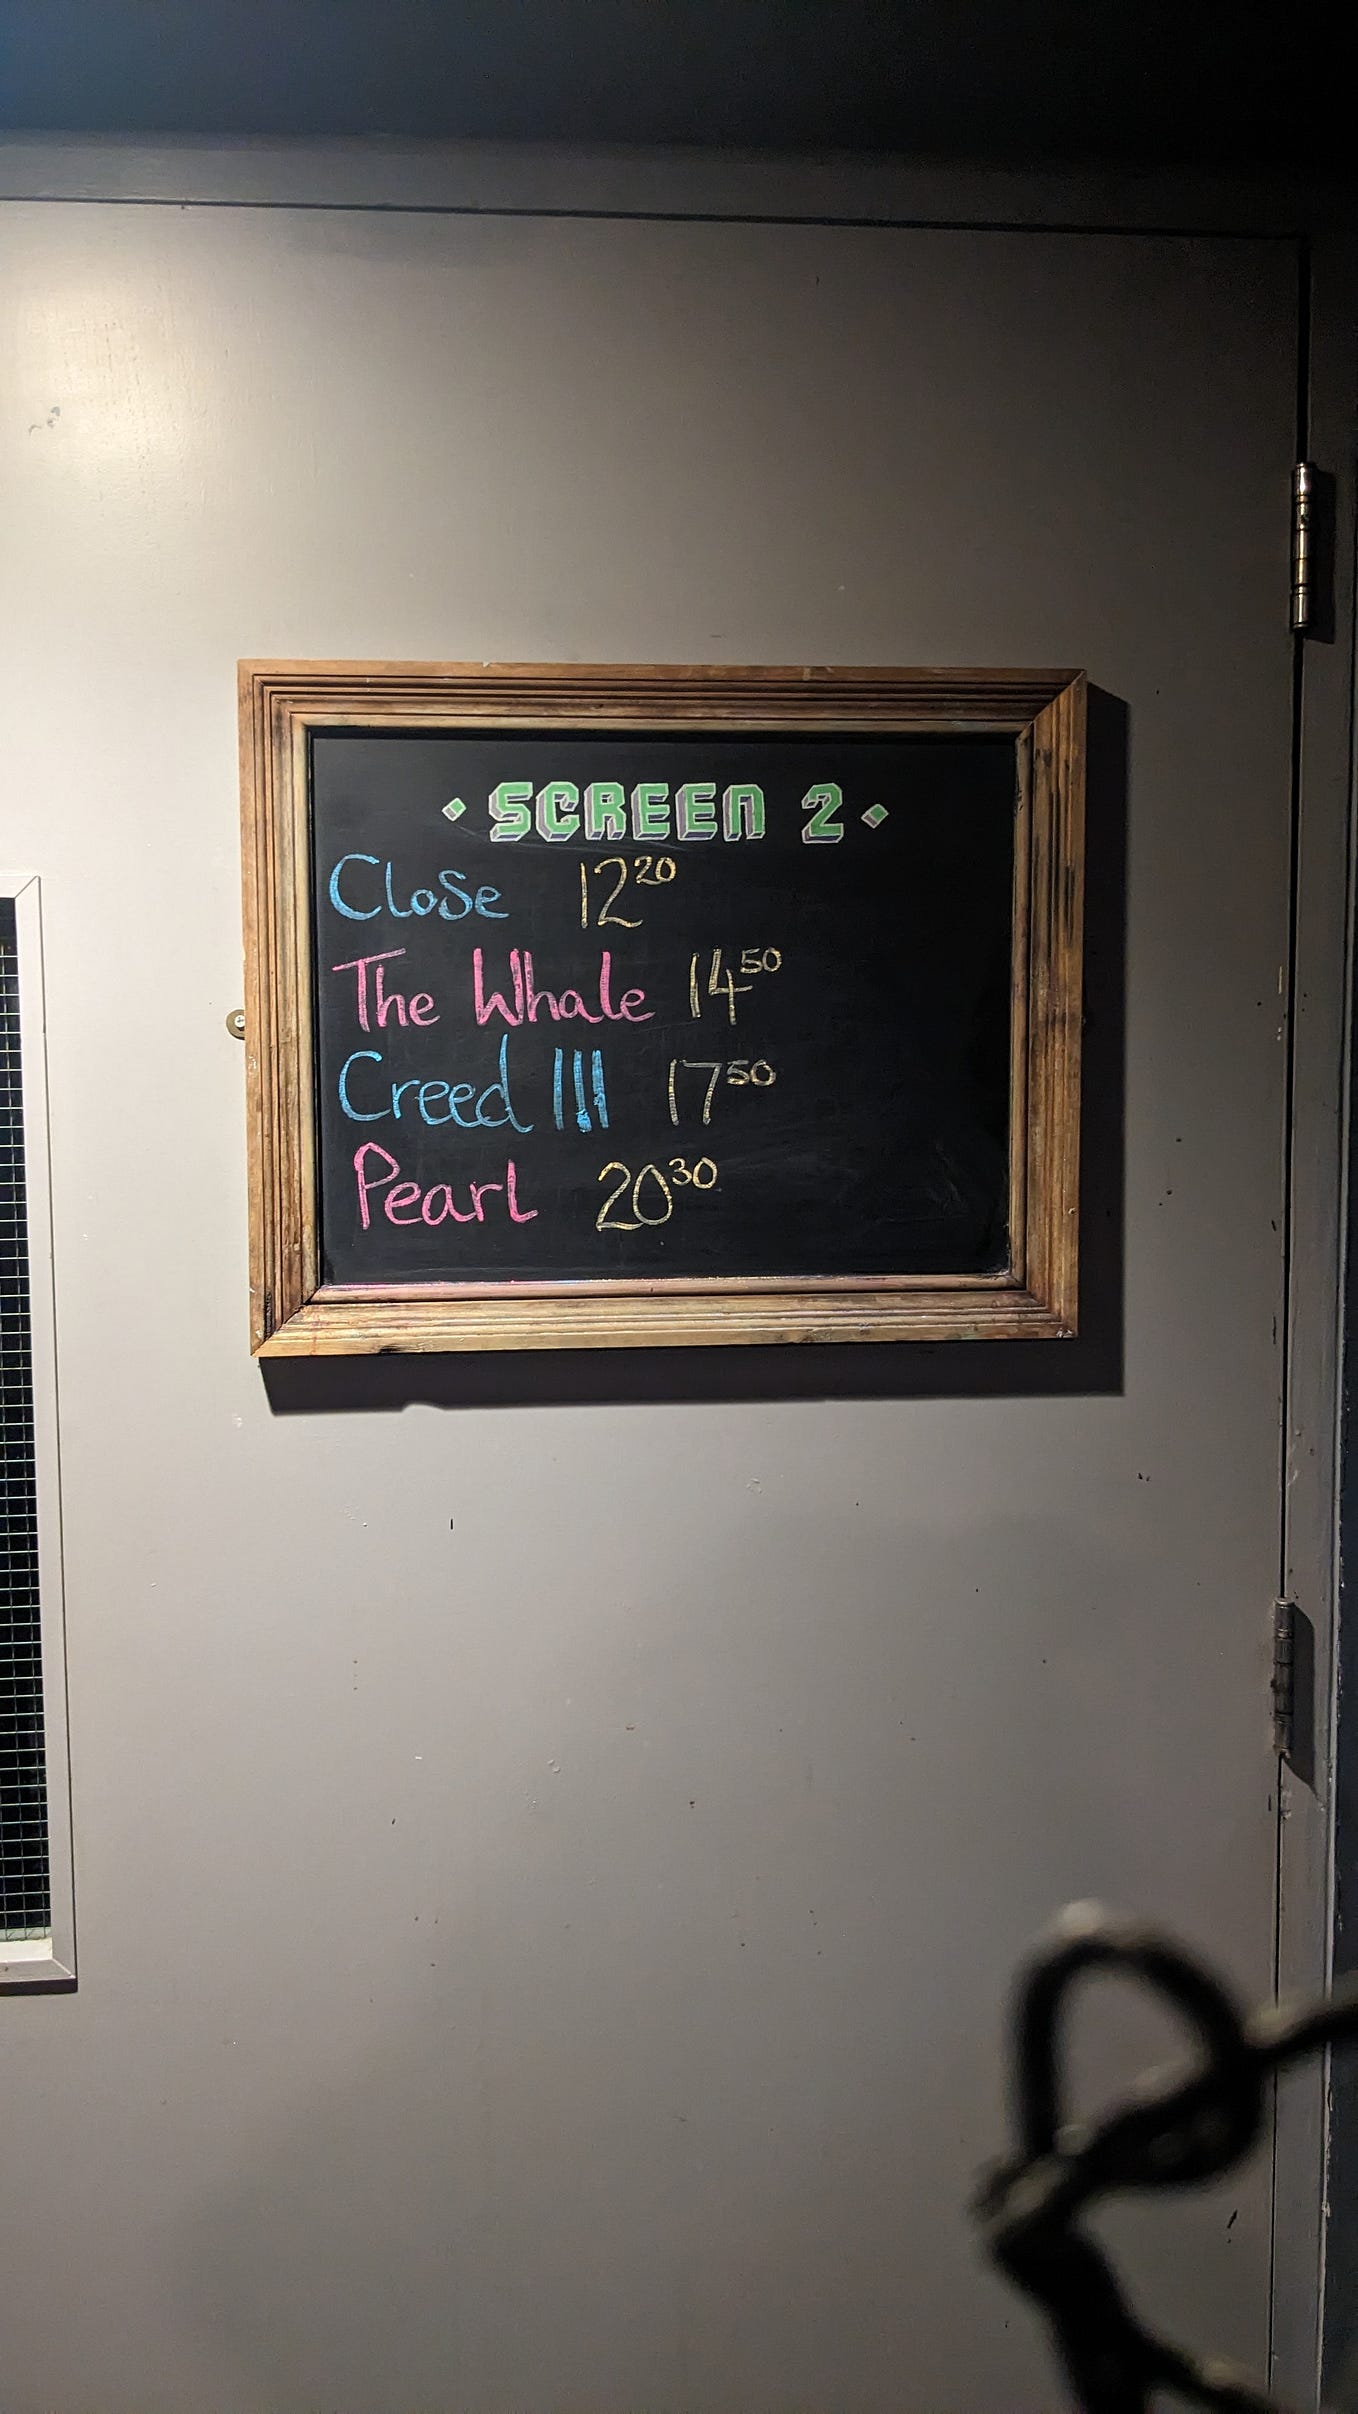 · SCREEN 2 ·
Close 12²⁰
The Whale 14⁵⁰
Creed III 17⁵⁰
Pearl 20³⁰